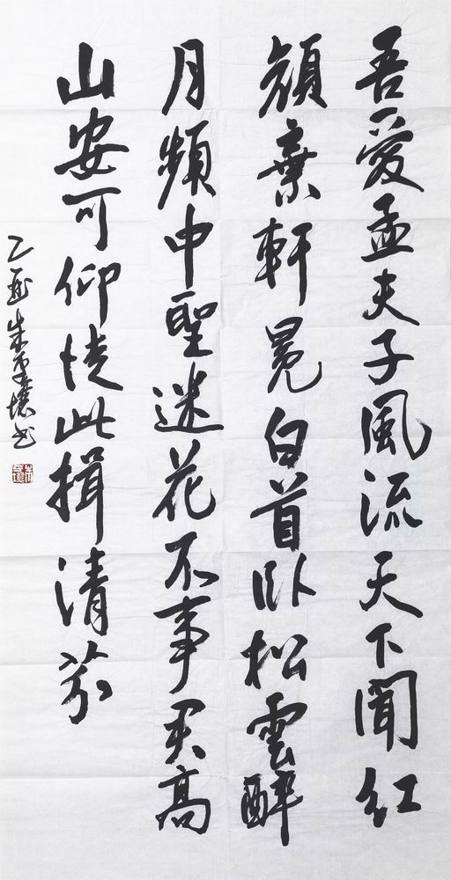 吾愛孟夫子風流天下聞紅
顔棄軒冕白首卧松雲醉
月頻中聖迷花不事君高
山安可仰徒此揖清芬
乙酉朱书